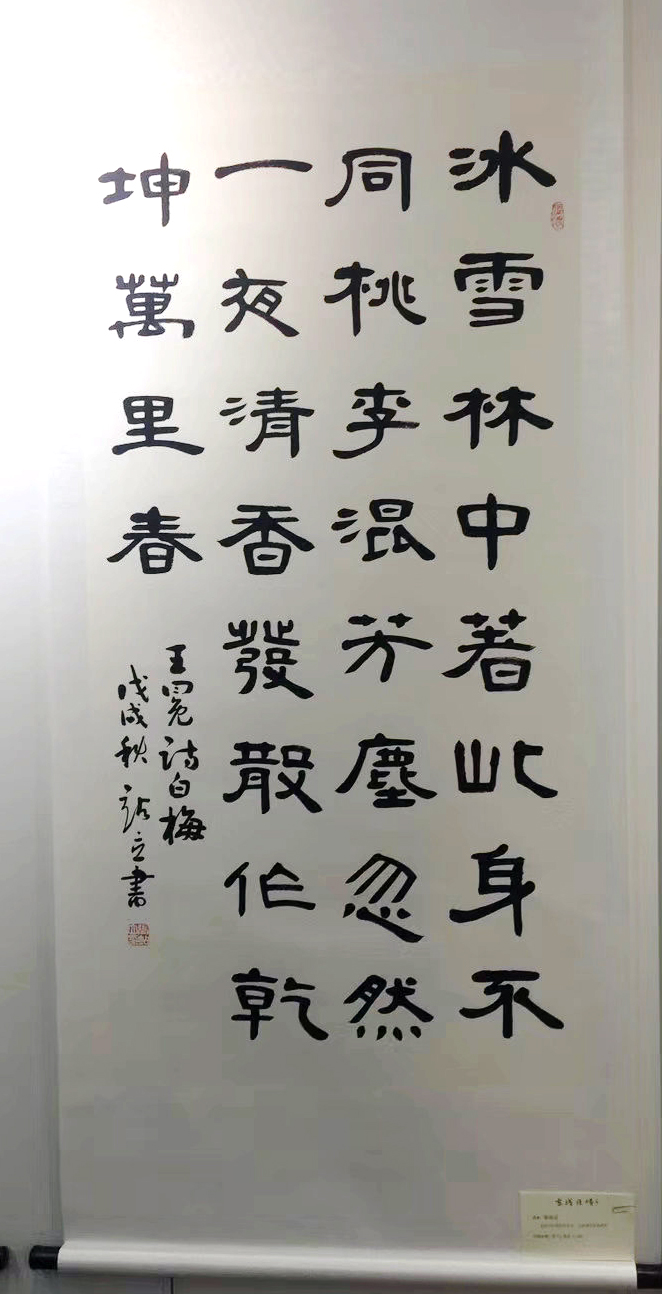 冰雪林中著此身不
同桃李混芳塵忽然
一夜清香發散作乾
坤萬里春
王冕詩白梅
戊戌秋
立書